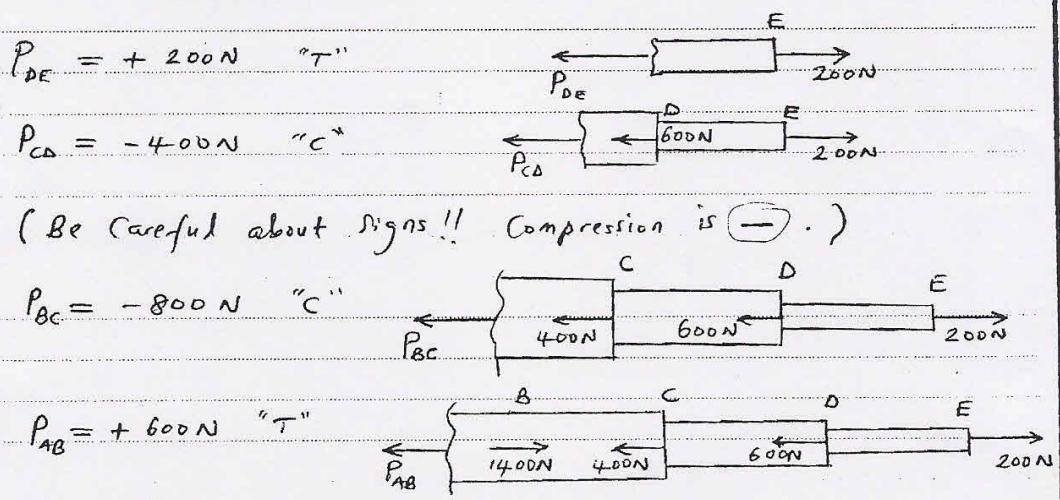 E
P_DE = + 200N "T"
P_DE 200N
D E
P_CD = -400N "C" 600N
P_CD 200N
(Be Careful about Signs!! Compression is − .)
C D E
P_BC = -800N "C"
P_BC 400N 600N 200N
B C D E
P_AB = + 600N "T"
P_AB 1400N 400N 600N 200N